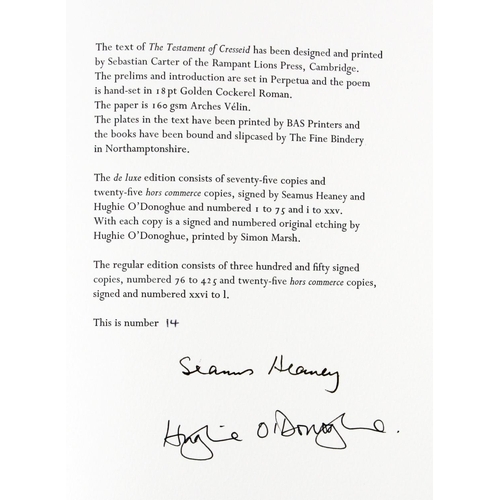 The text of The Testament of Cresseid has been designed and printed
by Sebastian Carter of the Rampant Lions Press, Cambridge.
The prelims and introduction are set in Perpetua and the poem
is hand-set in 18 pt Golden Cockerel Roman.
The paper is 160 gsm Arches Vélin.
The plates in the text have been printed by BAS Printers and
the books have been bound and slipcased by The Fine Bindery
in Northamptonshire.
The de luxe edition consists of seventy-five copies and
twenty-five hors commerce copies, signed by Seamus Heaney and
Hughie O'Donoghue and numbered 1 to 75 and i to xxv.
With each copy is a signed and numbered original etching by
Hughie O'Donoghue, printed by Simon Marsh.
The regular edition consists of three hundred and fifty signed
copies, numbered 76 to 425 and twenty-five hors commerce copies,
signed and numbered xxvi to l.
This is number 14
Seamus Heaney
Hughie O'Donoghue.